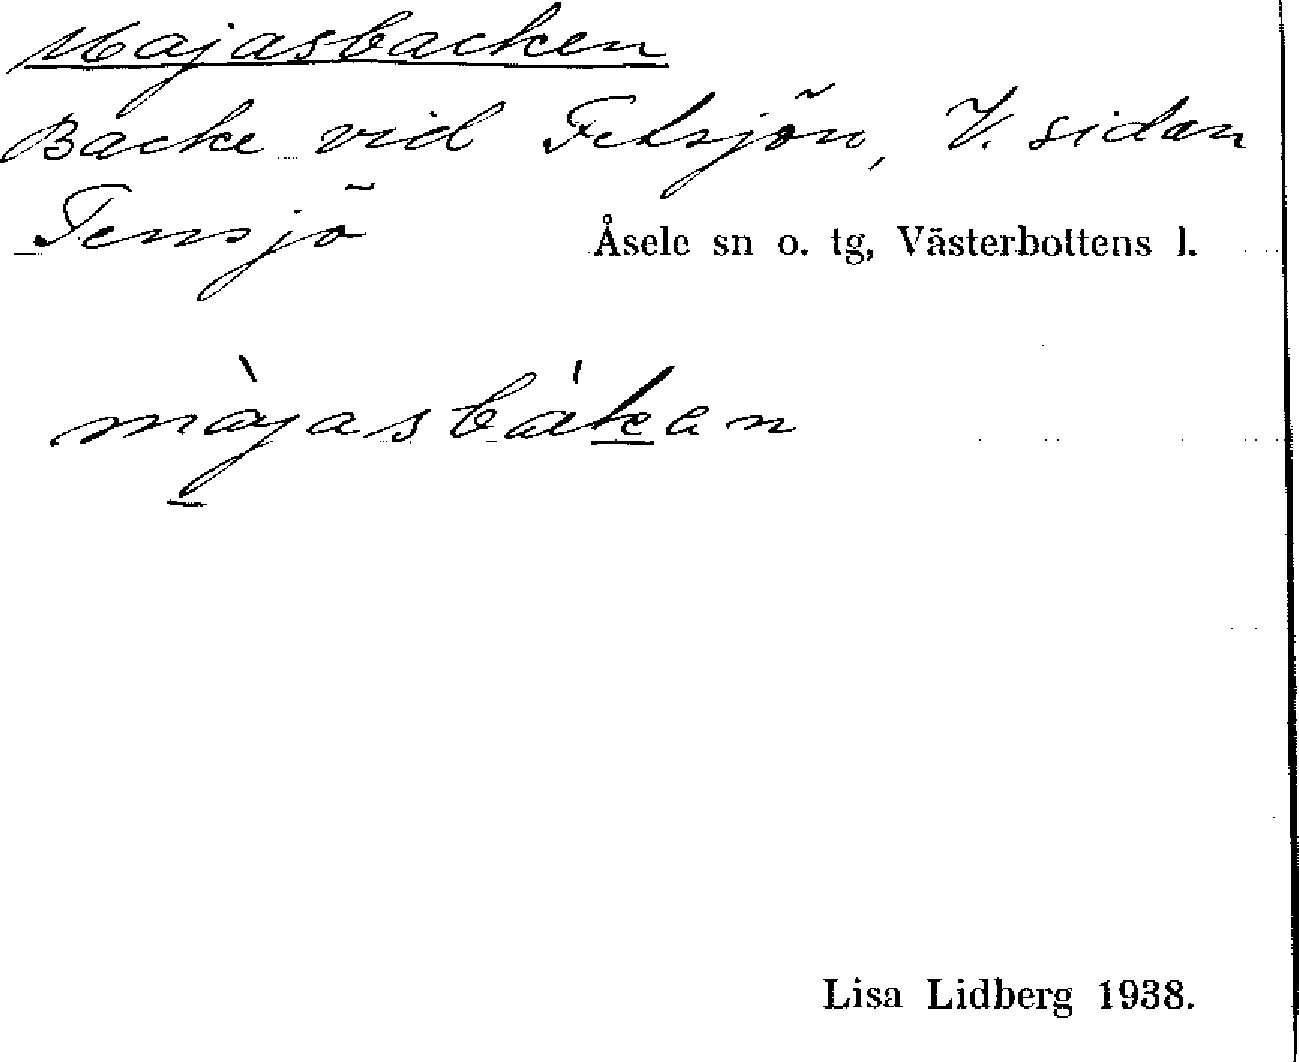 Majasbacken
Backe vid Fetsjön, V. sidan
Tensjö Åsele sn o. tg, Västerbottens l.
màjasbákan
Lisa Lidberg 1938.